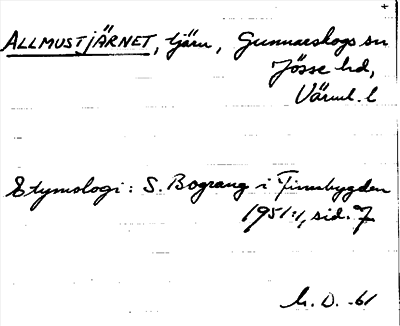 ALLMUSTJÄRNET, tjärn, Gunnarskogs sn
Jösse hd,
Värml. l
Etymologi: S. Bograng i Finnbygden
1951:1, sid. 7
M. D. -61